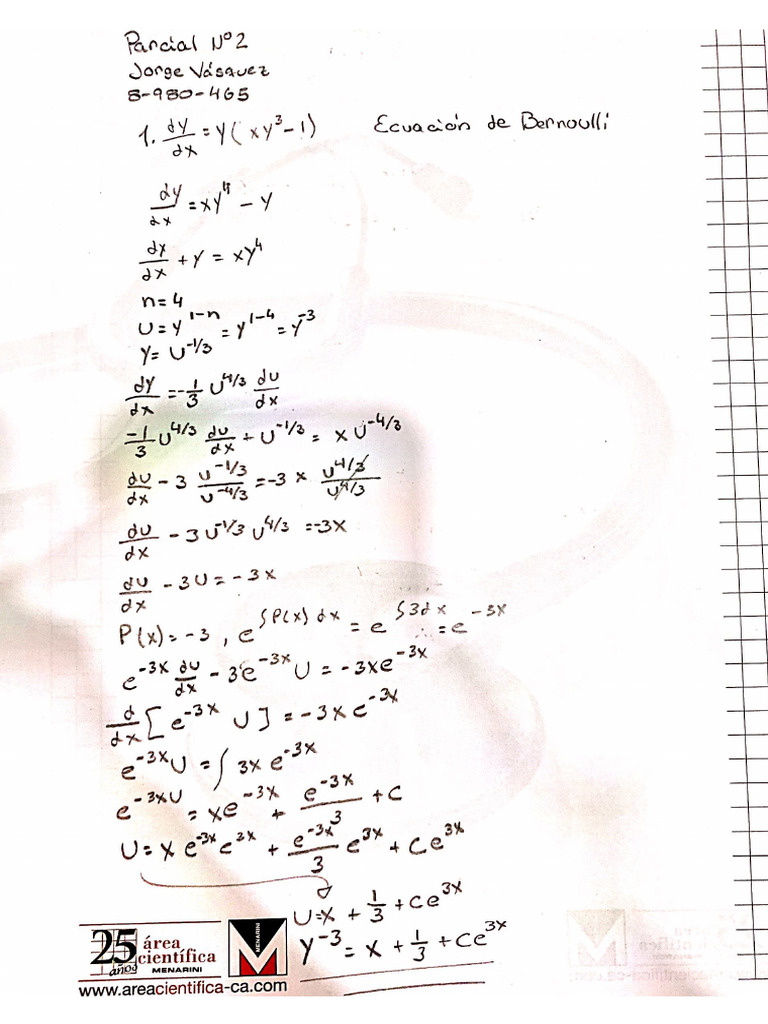 Parcial Nº2
Jorge Vásquez
8-980-465
1. dy/dx = y(xy³-1) Ecuación de Bernoulli
dy/dx = xy⁴ - y
dx/dx + y = xy⁴
n=4
u = y^(1-n) = y^(1-4) = y^(-3)
y = u^(-1/3)
dy/dx = -1/3 u^(4/3) du/dx
-1/3 u^(4/3) du/dx + u^(-1/3) = x u^(-4/3)
du/dx - 3 u^(-1/3)/u^(-4/3) = -3x u^(4/3)/u^(4/3)
du/dx - 3u^(-1/3) u^(4/3) = -3x
du/dx - 3u = -3x
P(x) = -3, e^(∫P(x)dx) = e^(∫3dx) = e^(-3x)
e^(-3x) du/dx - 3e^(-3x) u = -3xe^(-3x)
d/dx [e^(-3x) u] = -3xe^(-3x)
e^(-3x) u = ∫ 3x e^(-3x)
e^(-3xu) = xe^(-3x) + e^(-3x)/3 + c
u = x e^(-3x) e^(3x) + e^(-3x)/3 e^(3x) + Ce^(3x)
u = x + 1/3 + Ce^(3x)
y^(-3) = x + 1/3 + Ce^(3x)
25 años
área
científica
MENARINI
MENARINI
www.areacientifica-ca.com